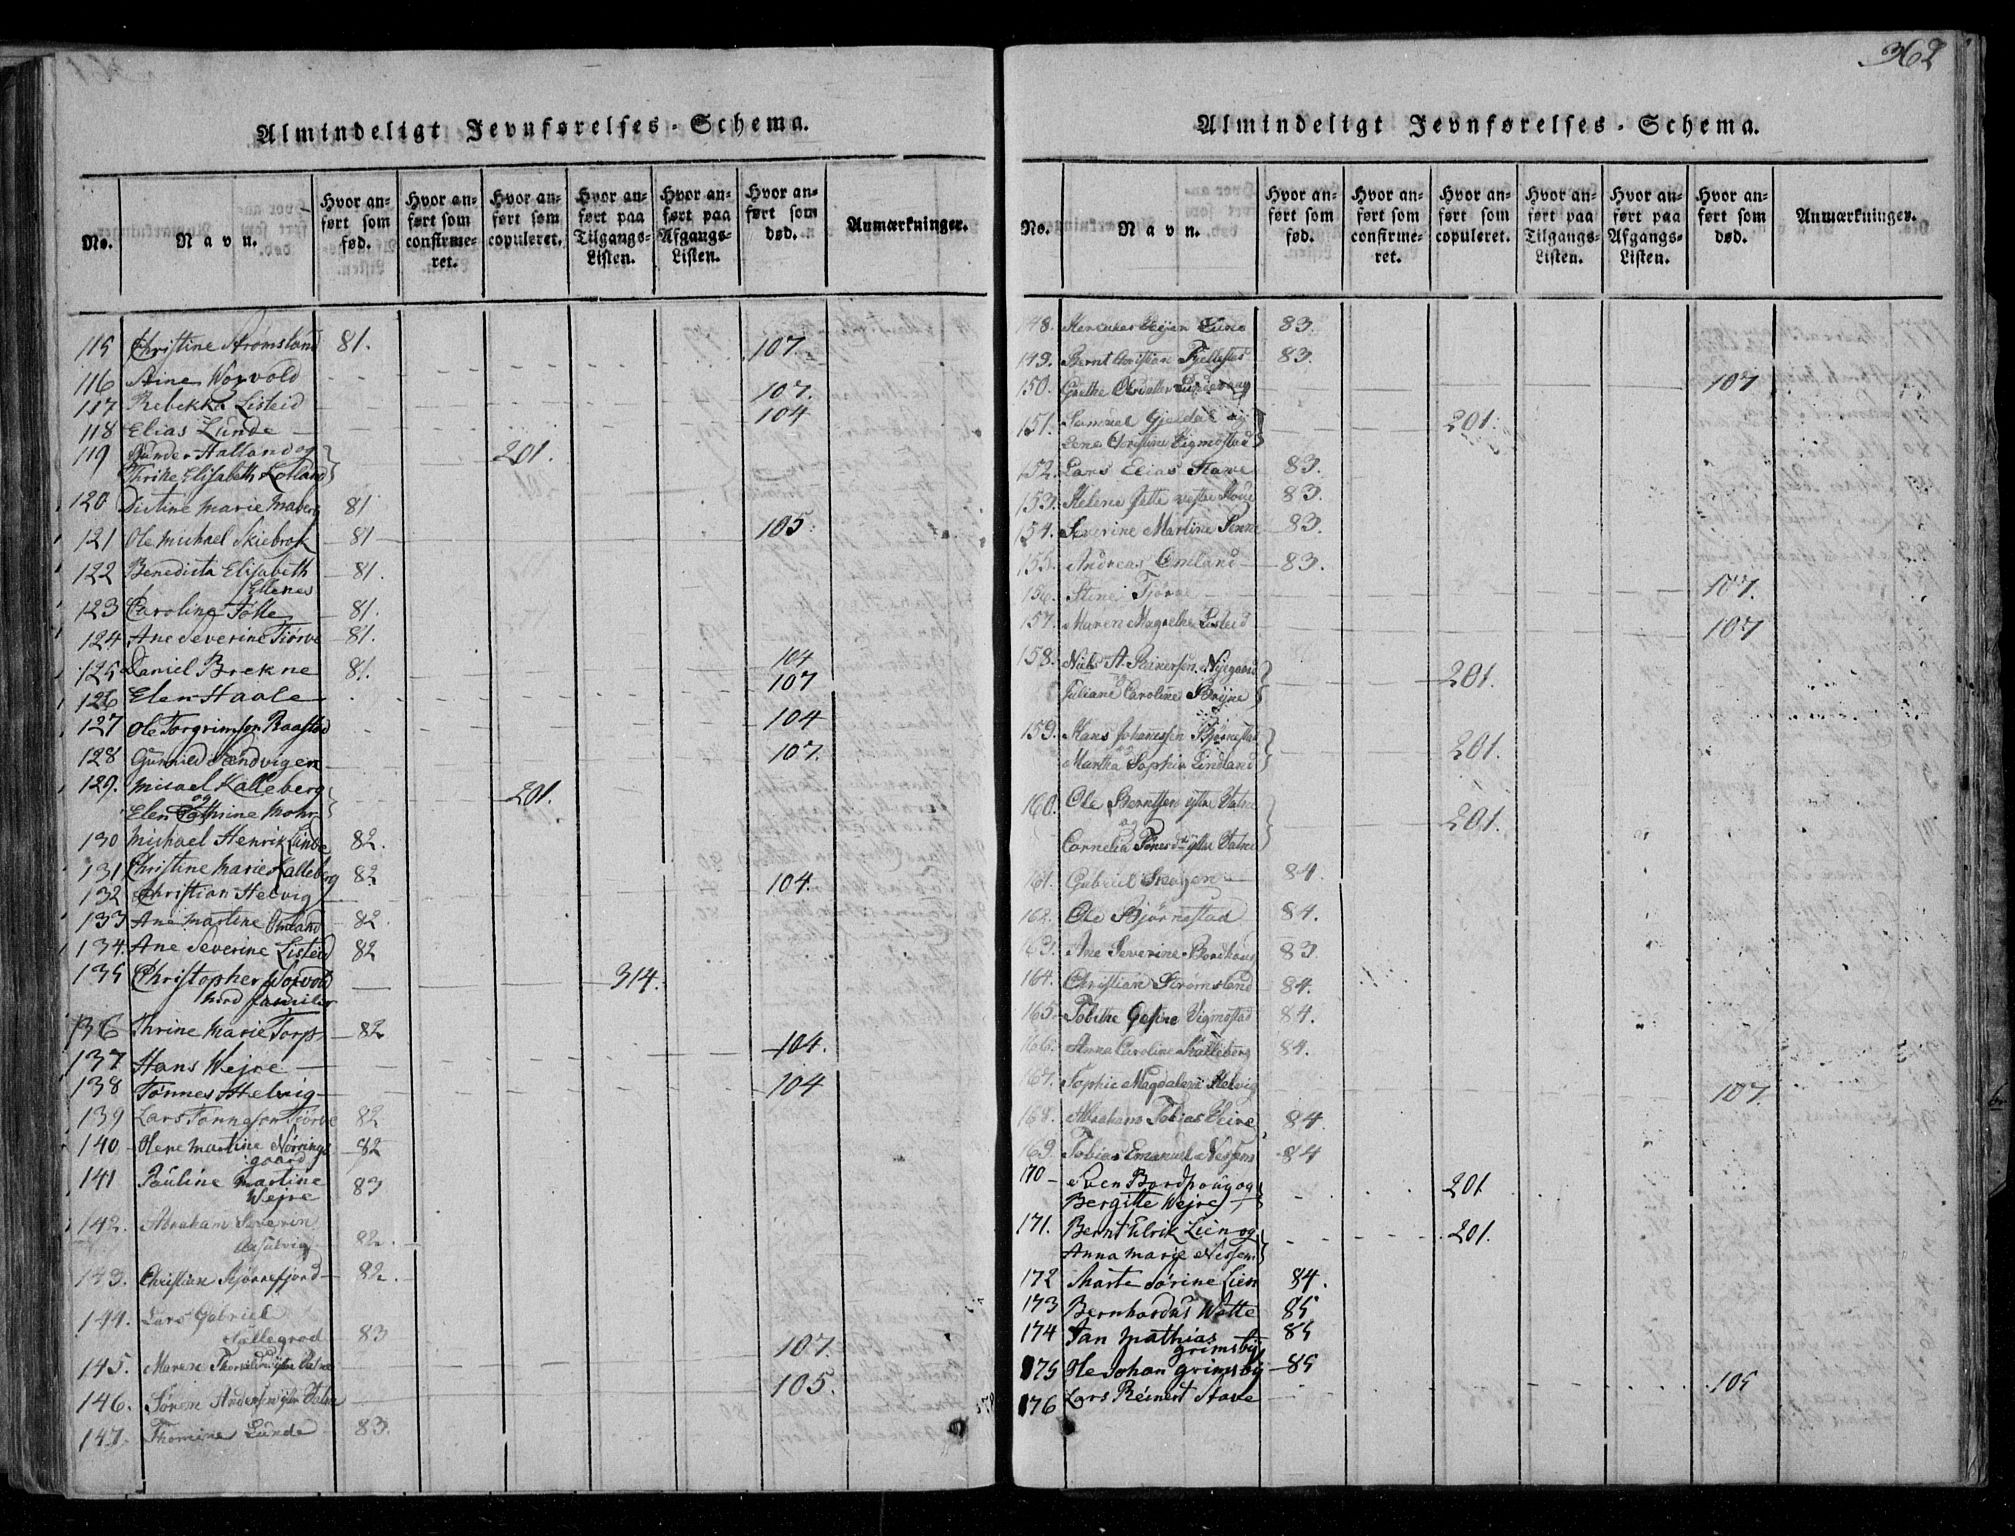 362
Almindeligt Jevnførelses-Schema.
No. Navn. Hvor anført som fød. Hvor anført som confirmeret. Hvor anført som copuleret. Hvor anført paa Tilgangs-Listen. Hvor anført paa Afgangs-Listen. Hvor anført som død. Anmærkninger.
115 Christine Strømsland 81.
116 Stine Worvold 107.
117 Rebekka Listeid 107.
118 Elias Lunde 104
119 Gunder Halland og 201.
Thrike Elisabeth Lotland
120 Marie 81
121 Ole Michael Skiebrok 81 105.
122 Benedicta Elisabeth 81.
Ellenes
123 Caroline 81.
124 Ane Severine Tiørve 81.
125 Daniel Brekne 81. 104
126 Elen Haale 107
127 Ole Torgrimson Raastad 104
128 Gunnild Sandvigen 107.
129. Micael Kalleberg 201.
og
Elen Cathrine Mohr
130 Michael Henrik Linde 82.
131 Christine Marie Kalleberg 82
132 Christian Helvig 104.
133 Ane Martine Omland 82
134. Ane Severine Listeid 82
135 Christopher Worvold 314.
med familie
136 Thrine Marie Torp 82
137 Hans Wejre 104.
138 Tønnes Helvig 104
139 Lars Tønneson Tiørve 82
140 Martine Nørrings 82
gaard
141 Pauline Martine 83
Wejre
142. Abraham Severin
82.
143. Christian 82.
144. Lars Gabriel
83
145. Maren 107.
146. Søren Andersen ytre Valne 105.
147. Thomine Lunde 83.
Almindeligt Jevnførelses-Schema.
No. Navn. Hvor anført som fød. Hvor anført som confirmeret. Hvor anført som copuleret. Hvor anført paa Tilgangs-Listen. Hvor anført paa Afgangs-Listen. Hvor anført som død. Anmærkninger.
148. 83.
149. Bernt Christian Fjellestad 83.
150. 107
151. Samuel Gjeldal og 201.
Lene Christine Vigmostad
152. Lars Elias Stave 83.
153. Helene Jette 83.
154. Severine Martine 83.
155. Andreas Omland 83.
156. Stine Tjørve 107.
157. Maren Magrethe Listeid 107
158. Niels A. Reinersen Nygaard 201.
og
Juliane Caroline Bryne
159. Hans Johannesen Bjørnestad 201.
og
Martha Sophia Lindland
160. Ole Berntsen ytre Valne 201.
og
Cornelia ytre Valne
161. Gabriel Skagen 84.
162. Ole Bjørnestad 84.
163. Ane Severine 83.
164. Christian Strømsland 84.
165. Tobithe Gesine Vigmostad 84.
166. Anna Caroline Kalleberg 84.
167. Sophie Magdalena Helvig 107.
168. Abraham Tobias Veire 84.
169. Tobias Emanuel Nissens 84
170 Sven og 201
Bergitte Wejre
171. Bernt Ulrik Lien og 201.
Anna Marie Nissens
172 Marte Sørine Lien 84.
173 Bernhardus Watte 85
174 Jan Mathias 85
Grimsby
175 Ole Johan Grimsby 85
176 Lars Reinert Stave 105